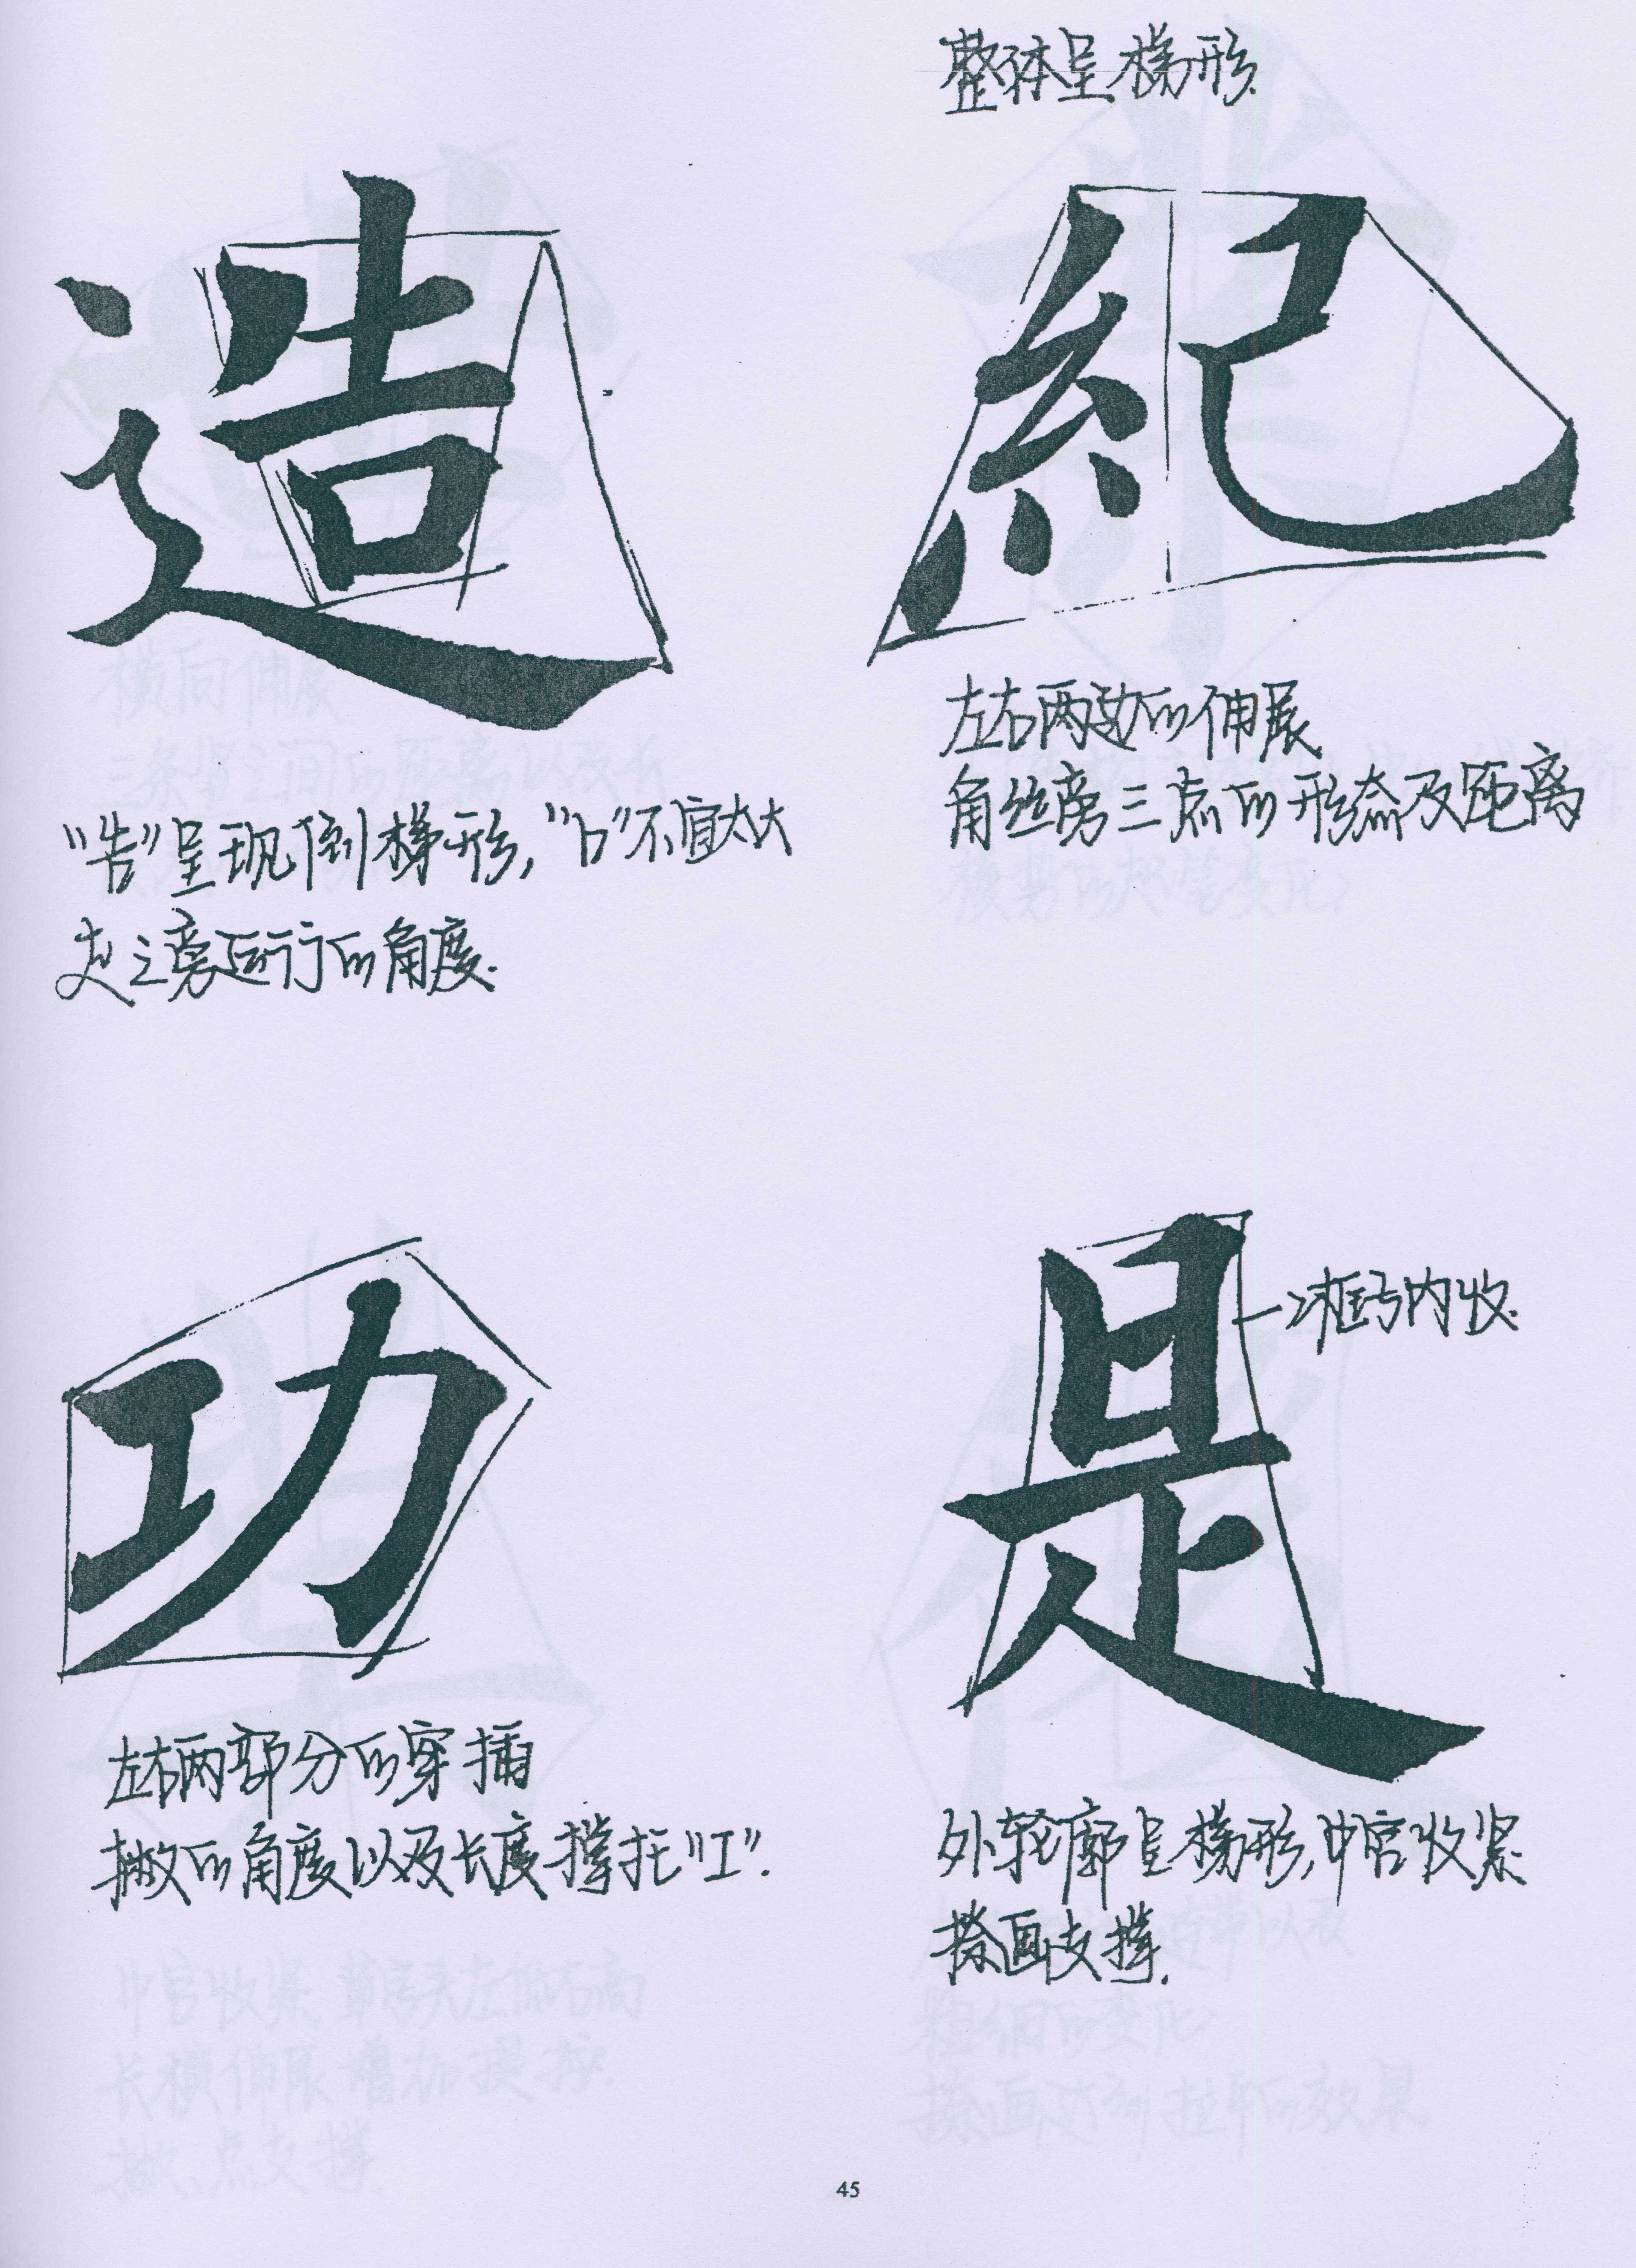 整体呈梯形.
造
紀
"告"呈现倒梯形,"口"不宜太大
走之旁运行的角度.
左右两边的伸展
角丝旁三点的形态及距离
功
是
框与内收.
左右两部分的穿插
撇的角度以及长度撑托"工".
外轮廓呈梯形,中宫收紧.
捺画支撑.
45